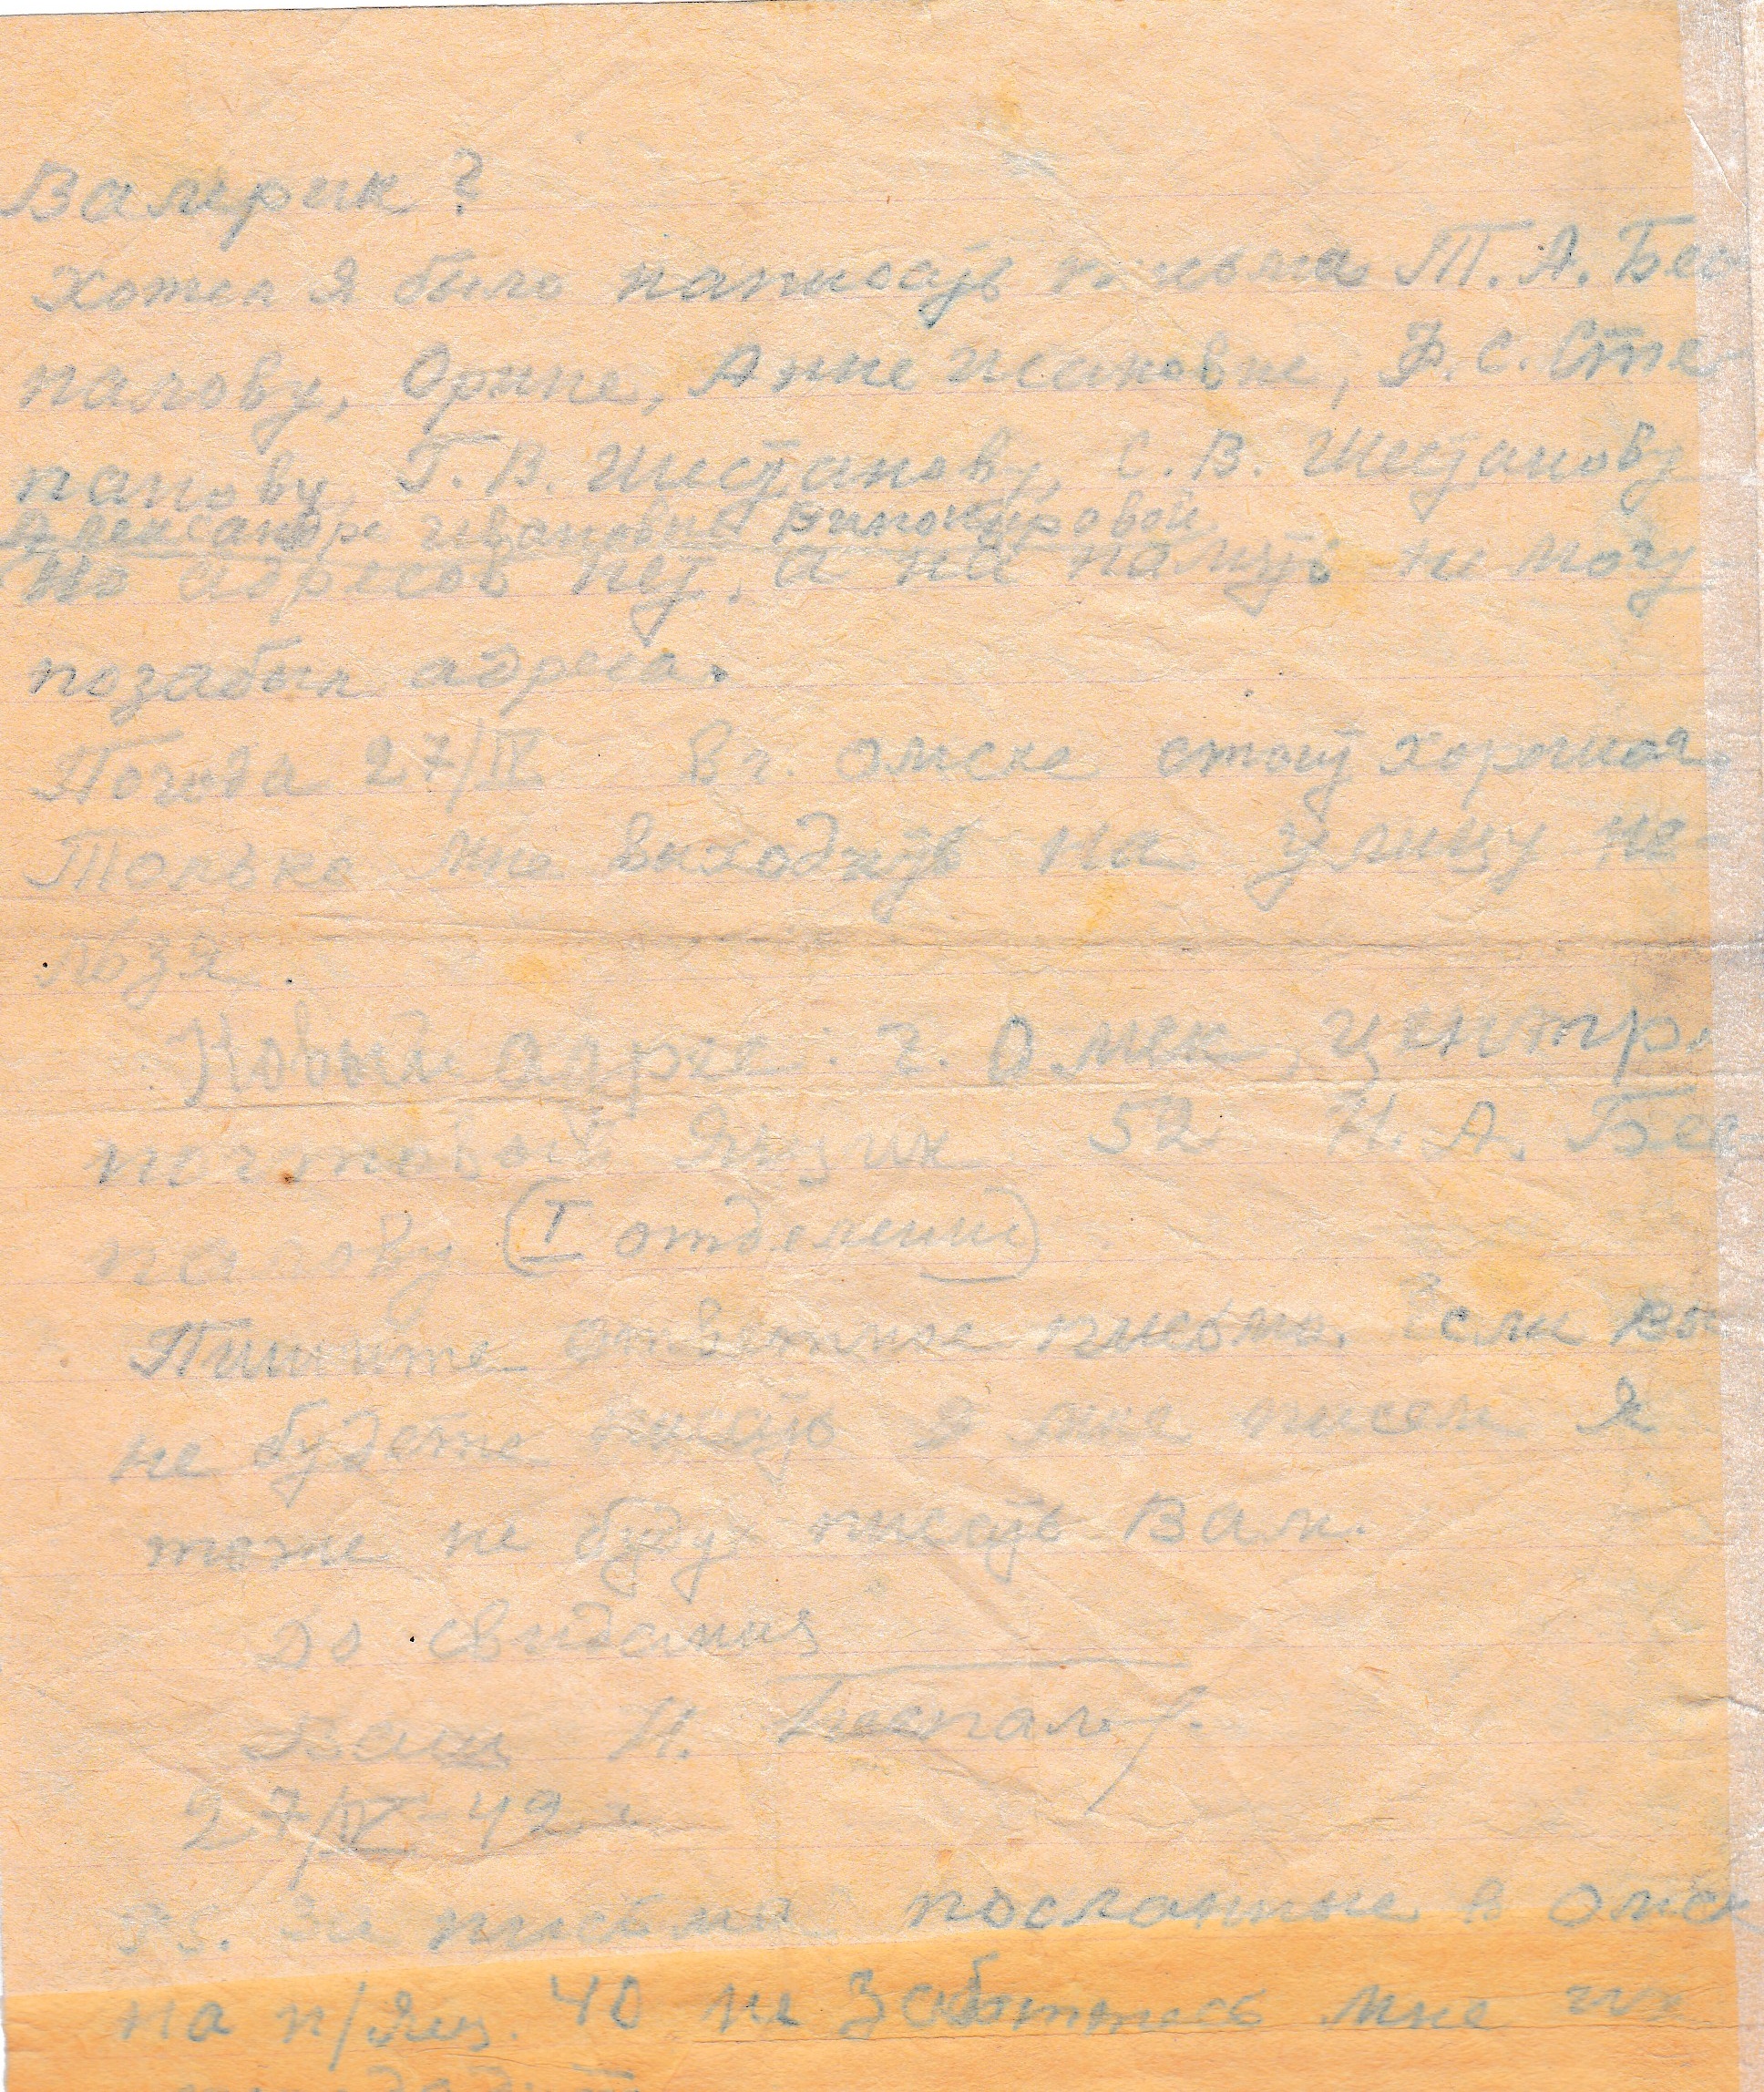 Валерик?
Хотел я было написать письма Т. А. Бес
палову, Орине, Анне Исаковне, Ф. С. Сте-
панову, Г. В. Шестакову, С. В. Шестакову
Александре Ивановне Винокуровой
Но адресов нет, а на память не могу
позабыл адреса.
Погода 27/IV в г. Омске стоит хорошая.
Только мне выходить на улицу не-
льзя.
Новый адрес: г. Омск, центр
почтовый ящик 52 Н. А. Бес
палову (I отделение)
Пишите ответное письмо. Если вы
не будете писать мне писем я
тоже не буду писать Вам.
До свидания
Ваш Н. Беспалов.
27/IV-42 г
PS. За письма посланные в Омск
на п/ящ. 40 не заботьтесь мне их